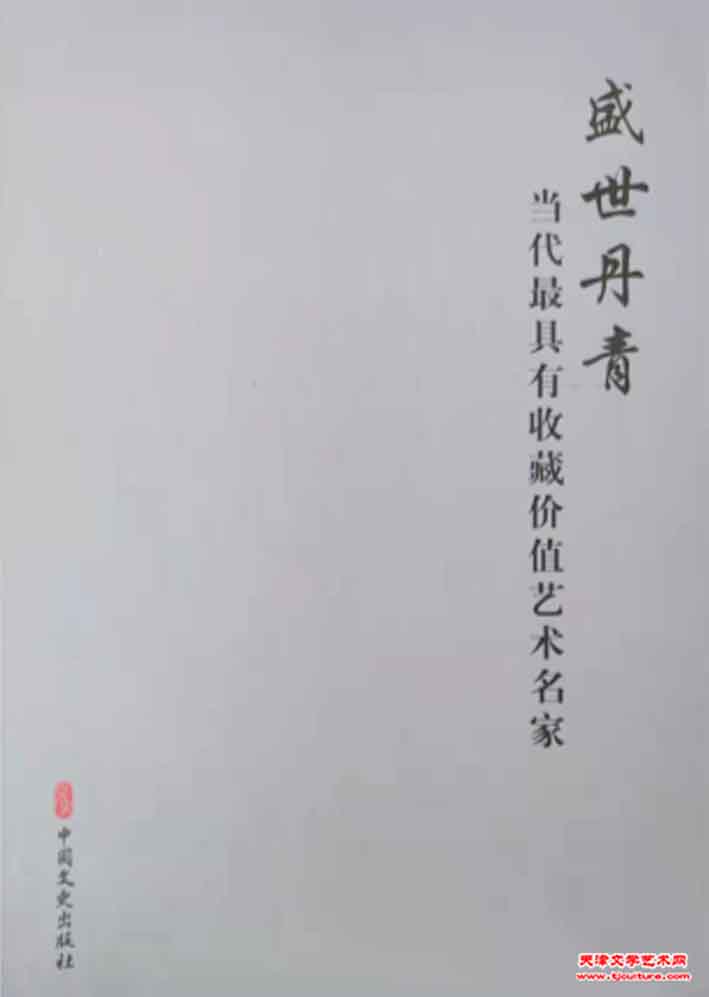 盛世丹青
当代最具有收藏价值艺术名家
中国文史出版社
天津文学艺术网
www.tjculture.com